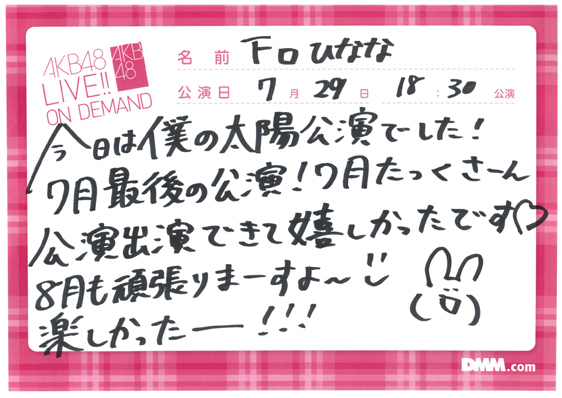 AKB48
LIVE!!
ON DEMAND
AKB
48
名前 下口ひなな
公演日 7月29日 18:30公演
今日は僕の太陽公演でした!
7月最後の公演!7月たっくさーん
公演出演できて嬉しかったです♡
8月も頑張りまーすよ〜
楽しかったー!!!
DMM.com